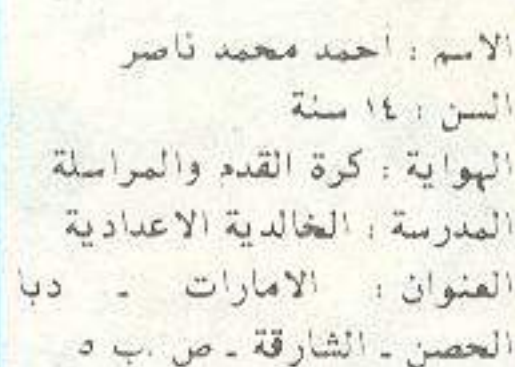 الاسم : احمد محمد ناصر
السن : ١٤ سنة
الهواية : كرة القدم والمراسلة
المدرسة : الخالدية الاعدادية
العنوان : الامارات - دبا
الحصن - الشارقة - ص .ب ٥